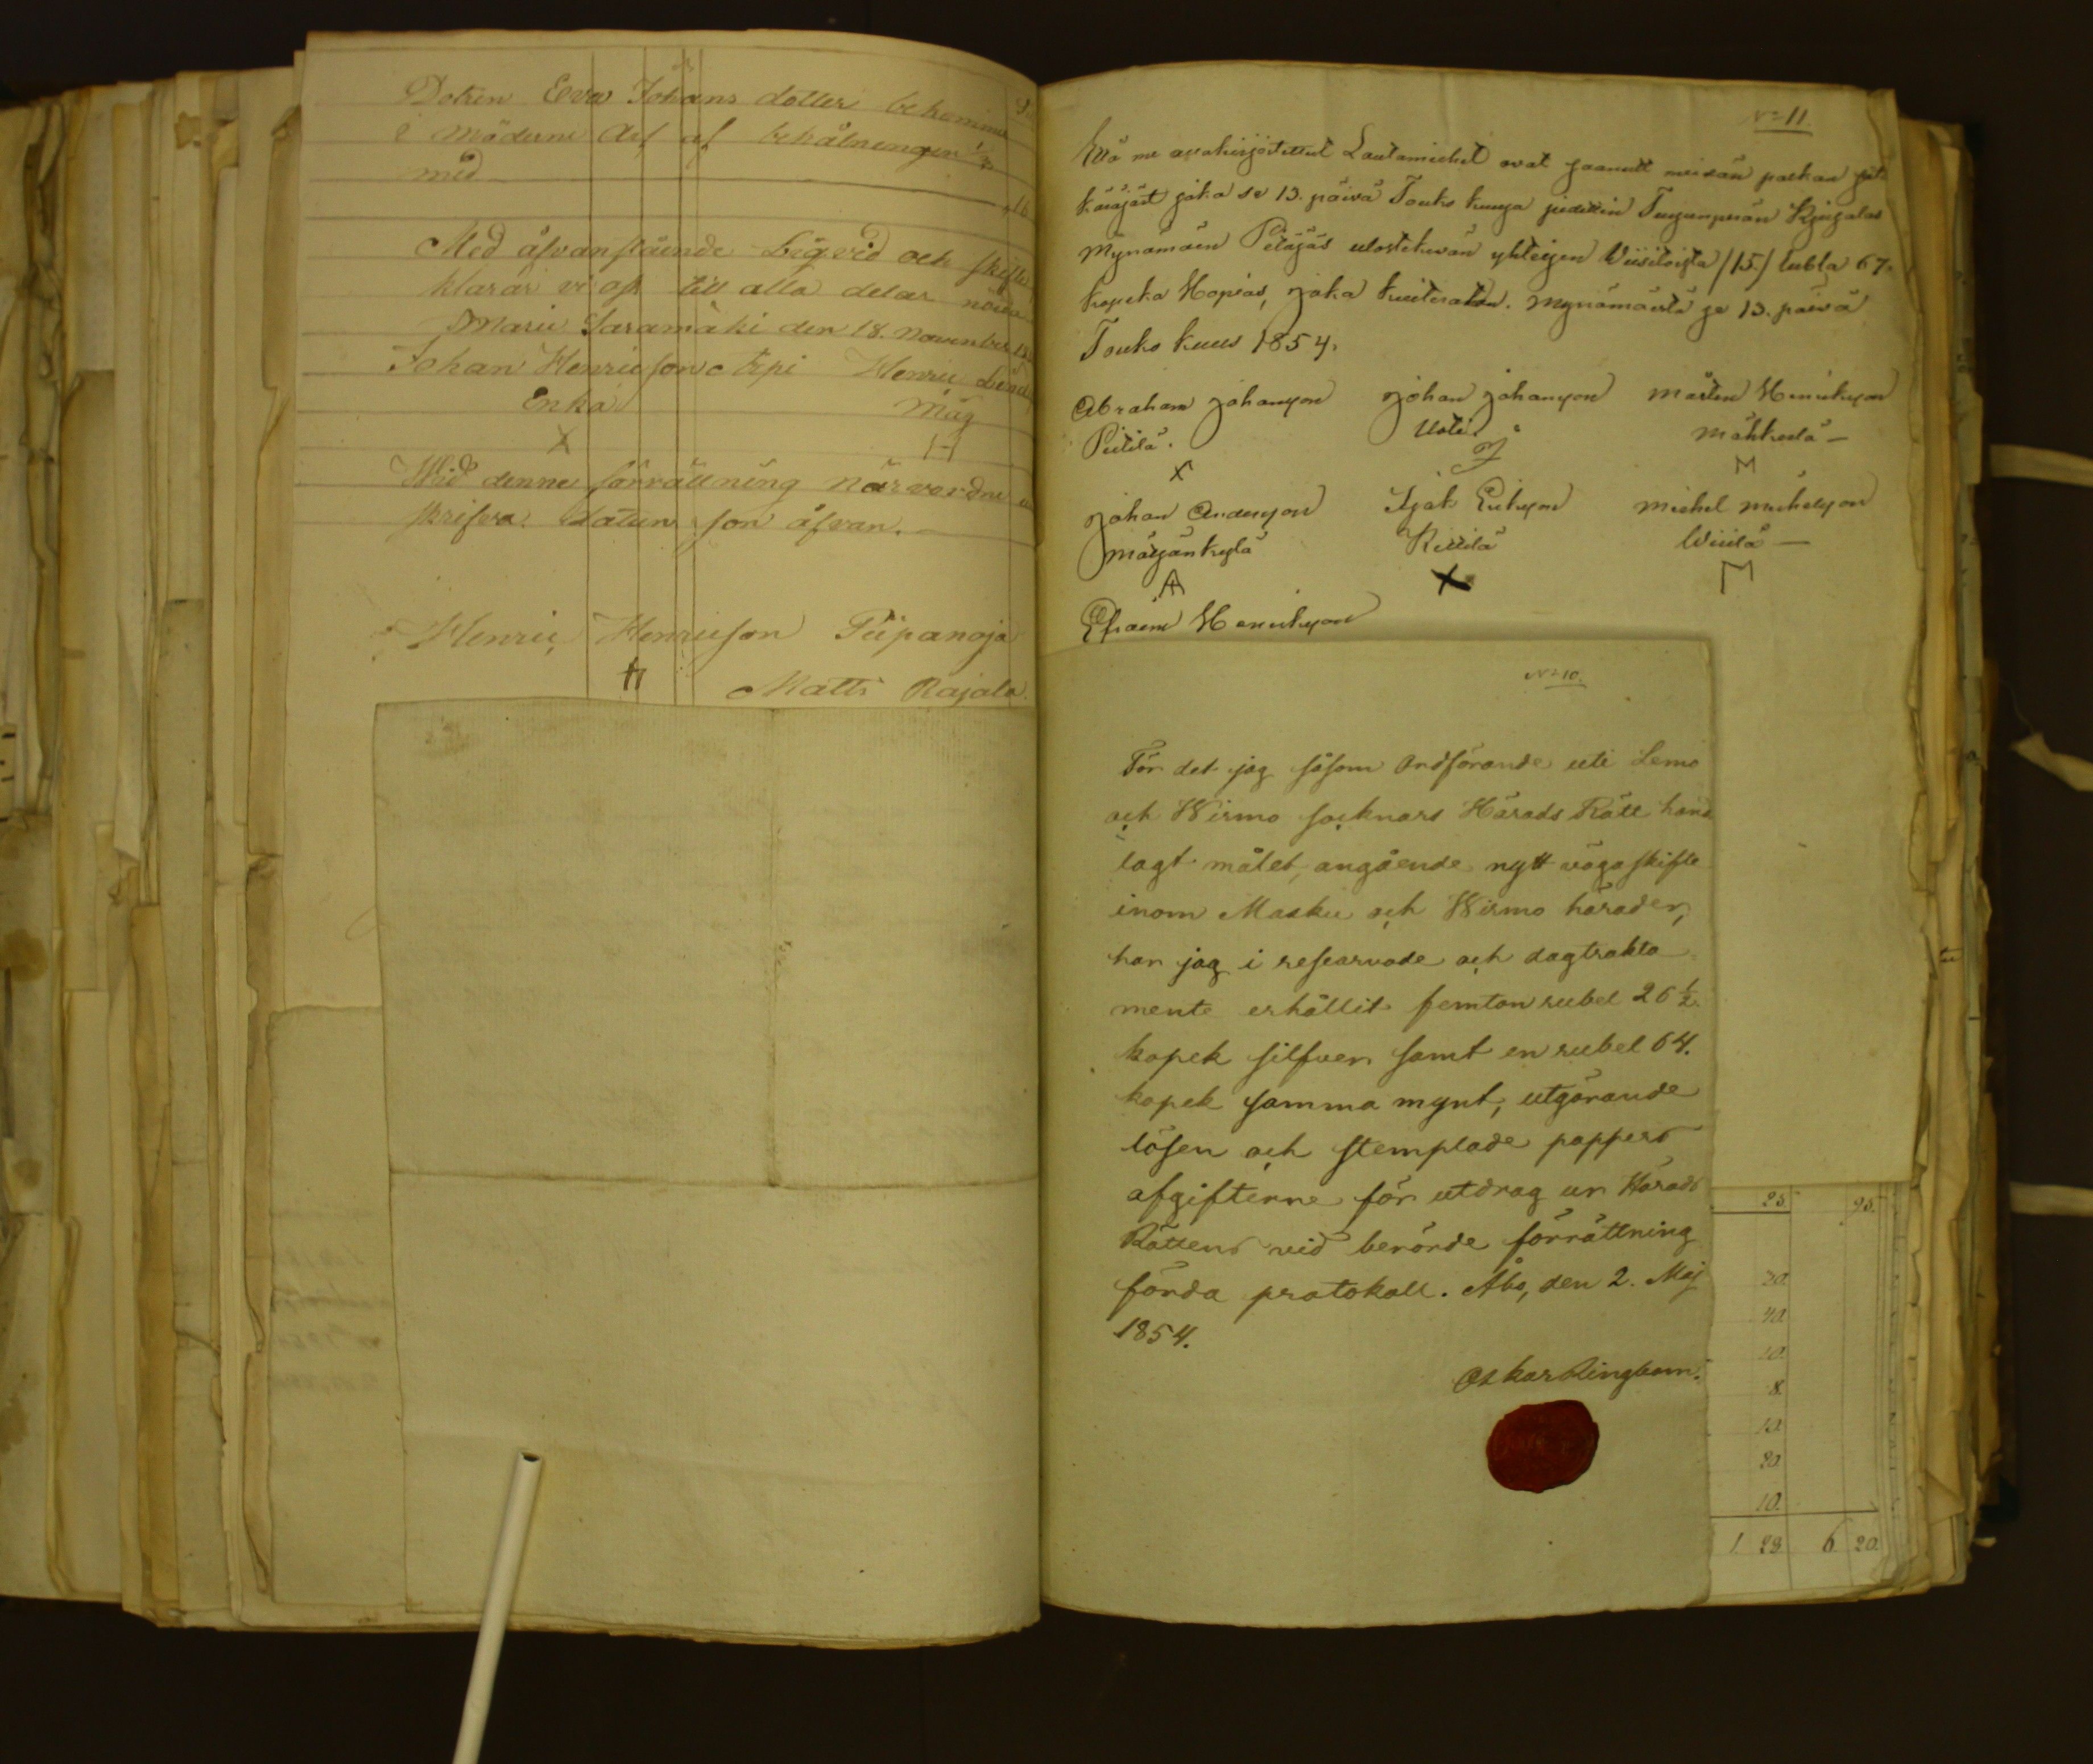 Dotren Eva Johans dotter bekommer
i möderne Arf af behålningen 1/3
med
Med åfvanstående Liqvid och skifte
klarar vi oss till alla delar nöida
Marie Saramäki den 18. November
Johan Henricson Äpi Henric
Enka Måg
X H
Wid denne förrättning närvordne
skrifva. Datun som åfvan.
Henric Henricson Piipanoja
H Matti Rajala.
No 11.
Että me allakirjoitettut Lautamiehet ovat saanutt meidän palkan
käräjäst joka se 13. päivä Touko kuusa
Mynämäen Pitäjäs ulostekevän yhteisen Viisitoista /15./ rubla 67.
kopeka Hopias, joka kuiterataan. Mynämäestä se 13. päivä
Touko kuus 1854.
Abraham Johansson Johan Johansson Mårten Henriksson
Pietilä. Uoti. Mähkälä –
X J M
Johan Andersson Isak Eriksson Michel Michelsson
Mäysänkylä Kiiilä Wiiilä –
A X M
Efraim Henriksson
No 10.
För det jag såsom Ordförande uti Lemo
och Wirmo socknars Härads Rätt hand
lagt målet, angående nytt vägaskifte
inom Masku och Wirmo härader,
har jag i researvode och dagtrakta
mente erhållit femton rubel 26 1/2.
kopek silfver samt en rubel 64.
kopek samma mynt, utgörande
lösen och stemplade pappers
afgifterne för utdrag ur Härads
Rättens vid berörde förrättning
förda protokoll. Åbo, den 2. Maj
1854.
Oskar Ringbom.
25. 95.
20.
40.
10.
8.
10.
20.
10.
1. 28 6. 20.